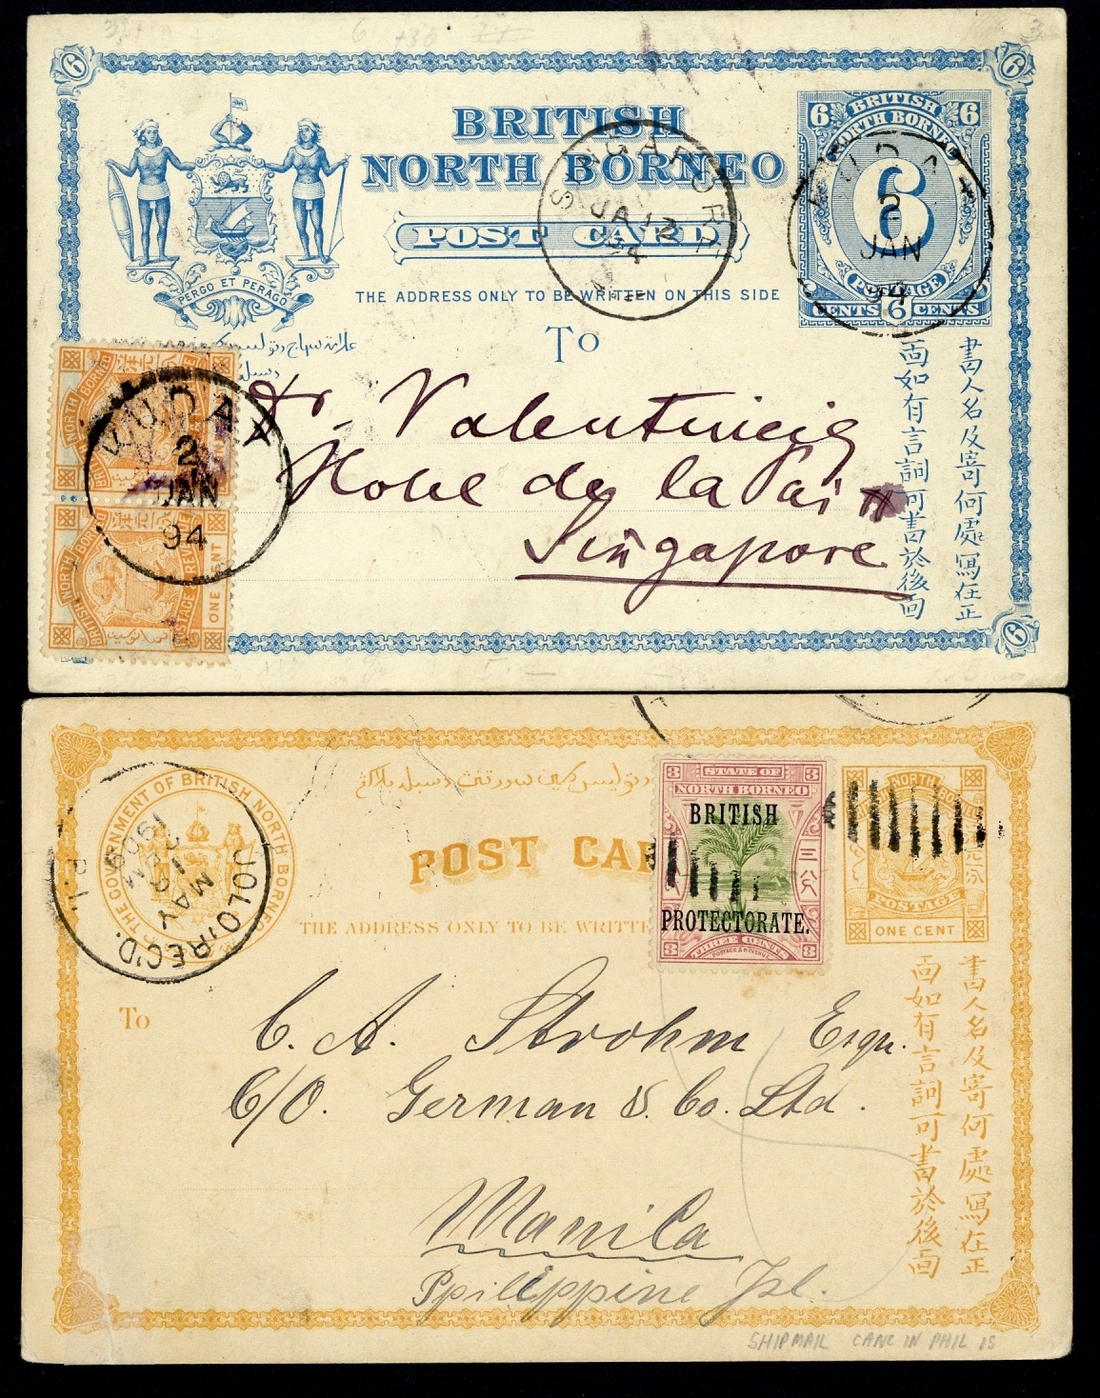 6
6
BRITISH
NORTH BORNEO
POST CARD
THE ADDRESS ONLY TO BE WRITTEN ON THIS SIDE
To
PERGO ET PERAGO
6 BRITISH 6
NORTH BORNEO
6
POSTAGE
CENTS 6 CENTS
KUDAT
2
JAN
94
SINGAPORE
JA 12
94
書人名及寄何處寫在正
面如有言詞可書於後面
BRITISH NORTH BORNEO
POSTAGE & REVENUE
ONE CENT
KUDAT
2
JAN
94
Dr. Valentincig
Hotel de la Paix
Singapore
6
POST CAR
THE ADDRESS ONLY TO BE WRITTE
THE GOVERNMENT OF BRITISH NORTH BORNEO
JOLO, REC'D.
P.I.
MAY
1909
3 STATE OF 3
NORTH BORNEO
BRITISH
PROTECTORATE.
三分
3 THREE CENTS 3
POSTAGE & REVENUE
NORTH
POSTAGE
ONE CENT
To
C. A. Strohm Esqr.
C/O. German & Co. Ltd.
Manila
Ppilippine Isl.
書人名及寄何處寫在正
面如有言詞可書於後面
SHIPMAIL CANC IN PHIL IS